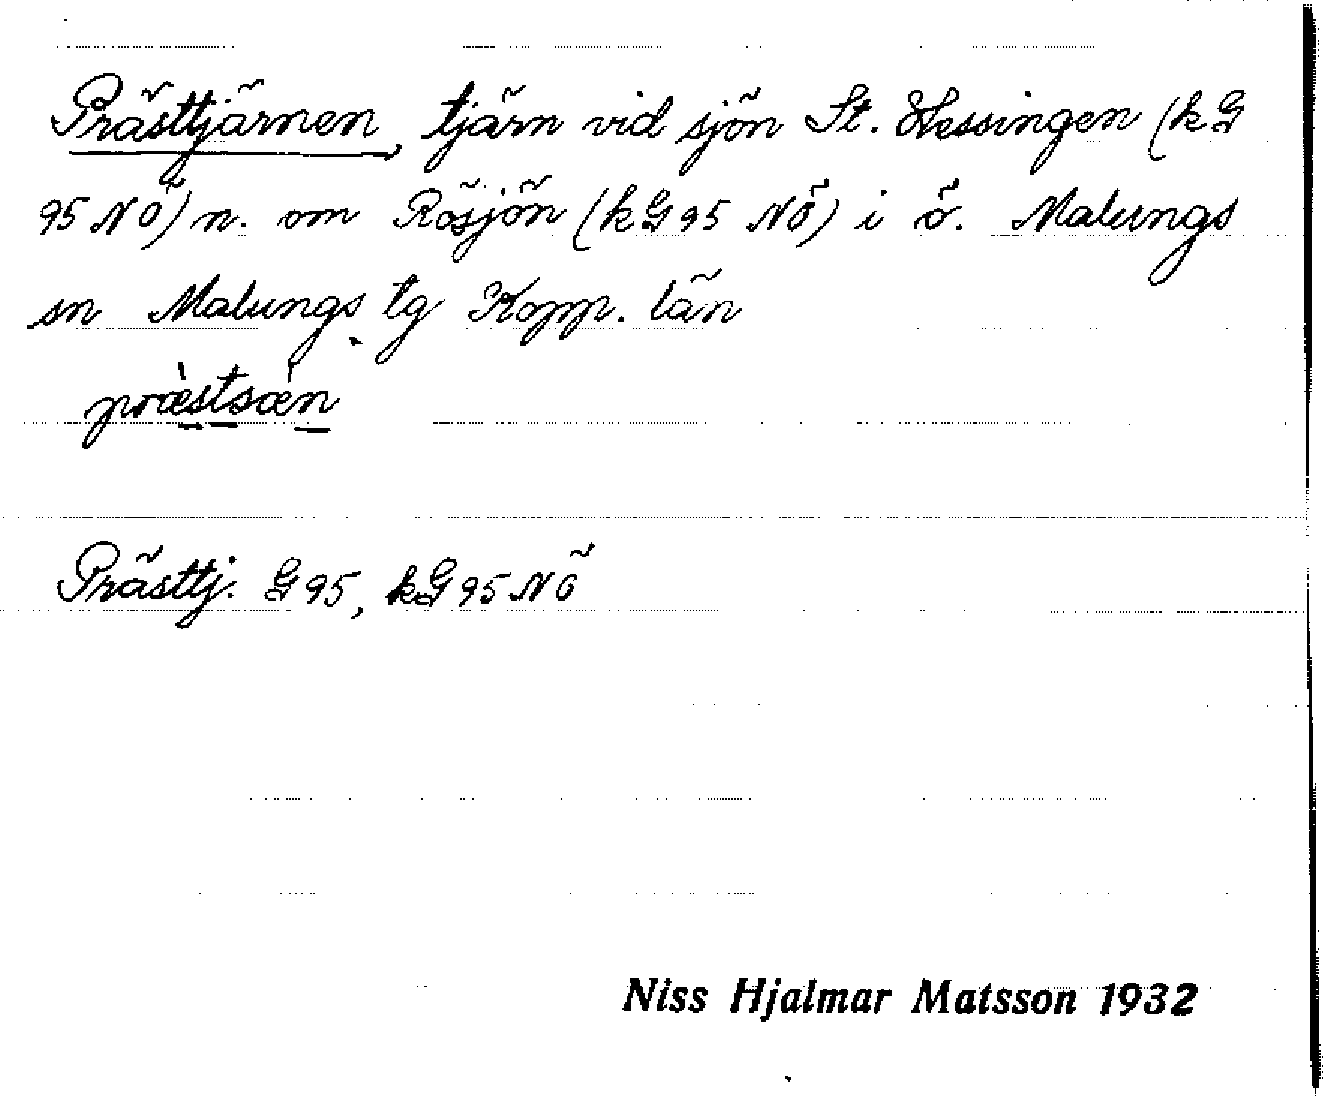 Prästtjärnen, tjärn vid sjön St. Flessingen (kG
95 NÖ) n. om Rösjön (kG 95 NÖ) i ö. Malungs
sn Malungs tg Kopp. län
præ̀stsæ̀n
Prästtj. G 95, kG 95 NÖ
Niss Hjalmar Matsson 1932